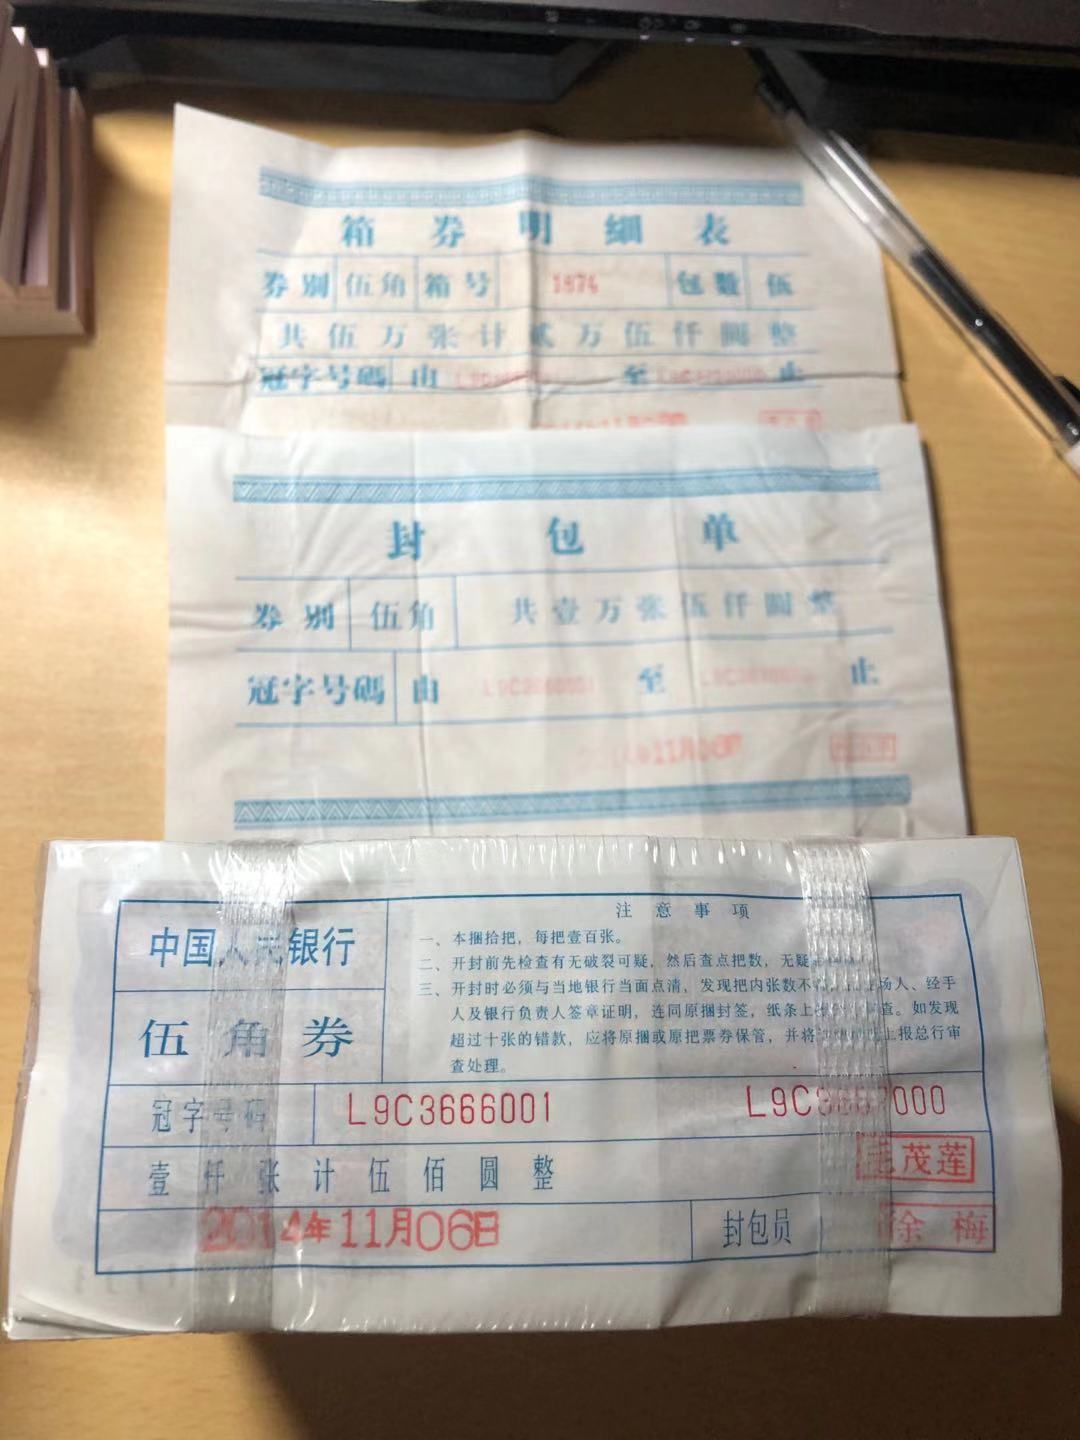 箱券明细表
券别 伍角 箱号 1874 包数 伍
共伍万张计贰万伍仟圆整
冠字号码 由 至 止
封包单
券别 伍角 共壹万张伍仟圆整
冠字号码 由 至 止
11月06日
中国人民银行
伍角券
注意事项
一、本捆拾把，每把壹百张。
二、开封前先检查有无破裂可疑，然后查点把数，无疑
三、开封时必须与当地银行当面点清，发现把内张数不 场人、经手
人及银行负责人签章证明，连同原捆封签，纸条上 查。如发现
超过十张的错款，应将原捆或原把票券保管，并将 上报总行审
查处理。
冠字号码 L9C3666001 L9C3667000
壹仟张计伍佰圆整 茂莲
2014年11月06日 封包员 徐梅